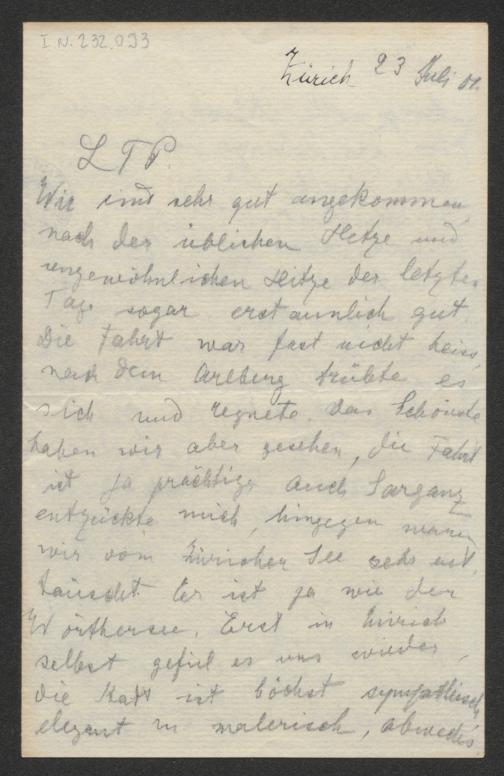 I.N. 232.093
Zürich 23 Juli 01.
L T P.
Wir sind sehr gut angekommen,
nach der üblichen Hetze und
ungewöhnlichen Hitze der letzten
Tage sogar erstaunlich gut
Die Fahrt war fast nicht heiss,
nach dem Arlberg trübte es
sich und regnete. Das Schönste
haben wir aber gesehen, die Fahrt
ist ja prächtig. Auch Sargans
entzückte mich, hingegen waren
wir vom Züricher See sehr ent,
täuscht. Er ist ja wie der
Wörthersee. Erst in Zürich
selbst gefiel es uns wieder,
die Stadt ist höchst sympathisch
elegant u malerisch,